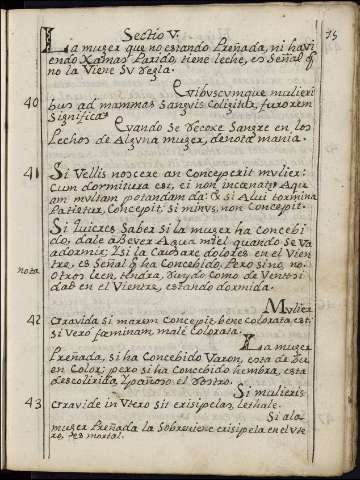 Sectio V. 75
La muger que no estando Preñada, ni havi
endo Xamas Parido, tiene leche, es Señal q̃
no la Viene Su Regla.
Quibuscumque mulieri
40 bus ad mammas Sanguis Coligitur, furorem
Significat.
Quando Se Recoxe Sangre en los
Pechos de Alguna muger, denota mania.
41 Si Vellis noscere an Conceperit mulier:
Cum dormitura est, ei non incænatæ Aqu
am mulsam potandam da: & si Alui tormina
Patietur, Concepit: si minus, non Concepit.
Si quieres Saber si la muger ha Concebi
do, dale a Bever Aqua miel quando se va
a dormir; I si la Causare dolores en el Vien
tre, es Señal q̃ ha Concebido, Pero si no, no.
nota
Otros leen, tendra, Ruydo Como de Ventosi
dad en el Vientre, estando dormida.
Mulier
42 Gravida si marem Concepit bene Colorata est:
si Vero fæminam male Colorata.
La muger
Preñada, si ha Concebido Varon, esta de Bu
en Color; pero si ha Concebido hembra, esta
descolirida, y pañoso el Rostro.
Si mulieris
43 Gravide in Utero sit erisipelas, lethale.
Si a la
muger Preñada la Sobreviene erisipela en el Ute
ro, es mortal.